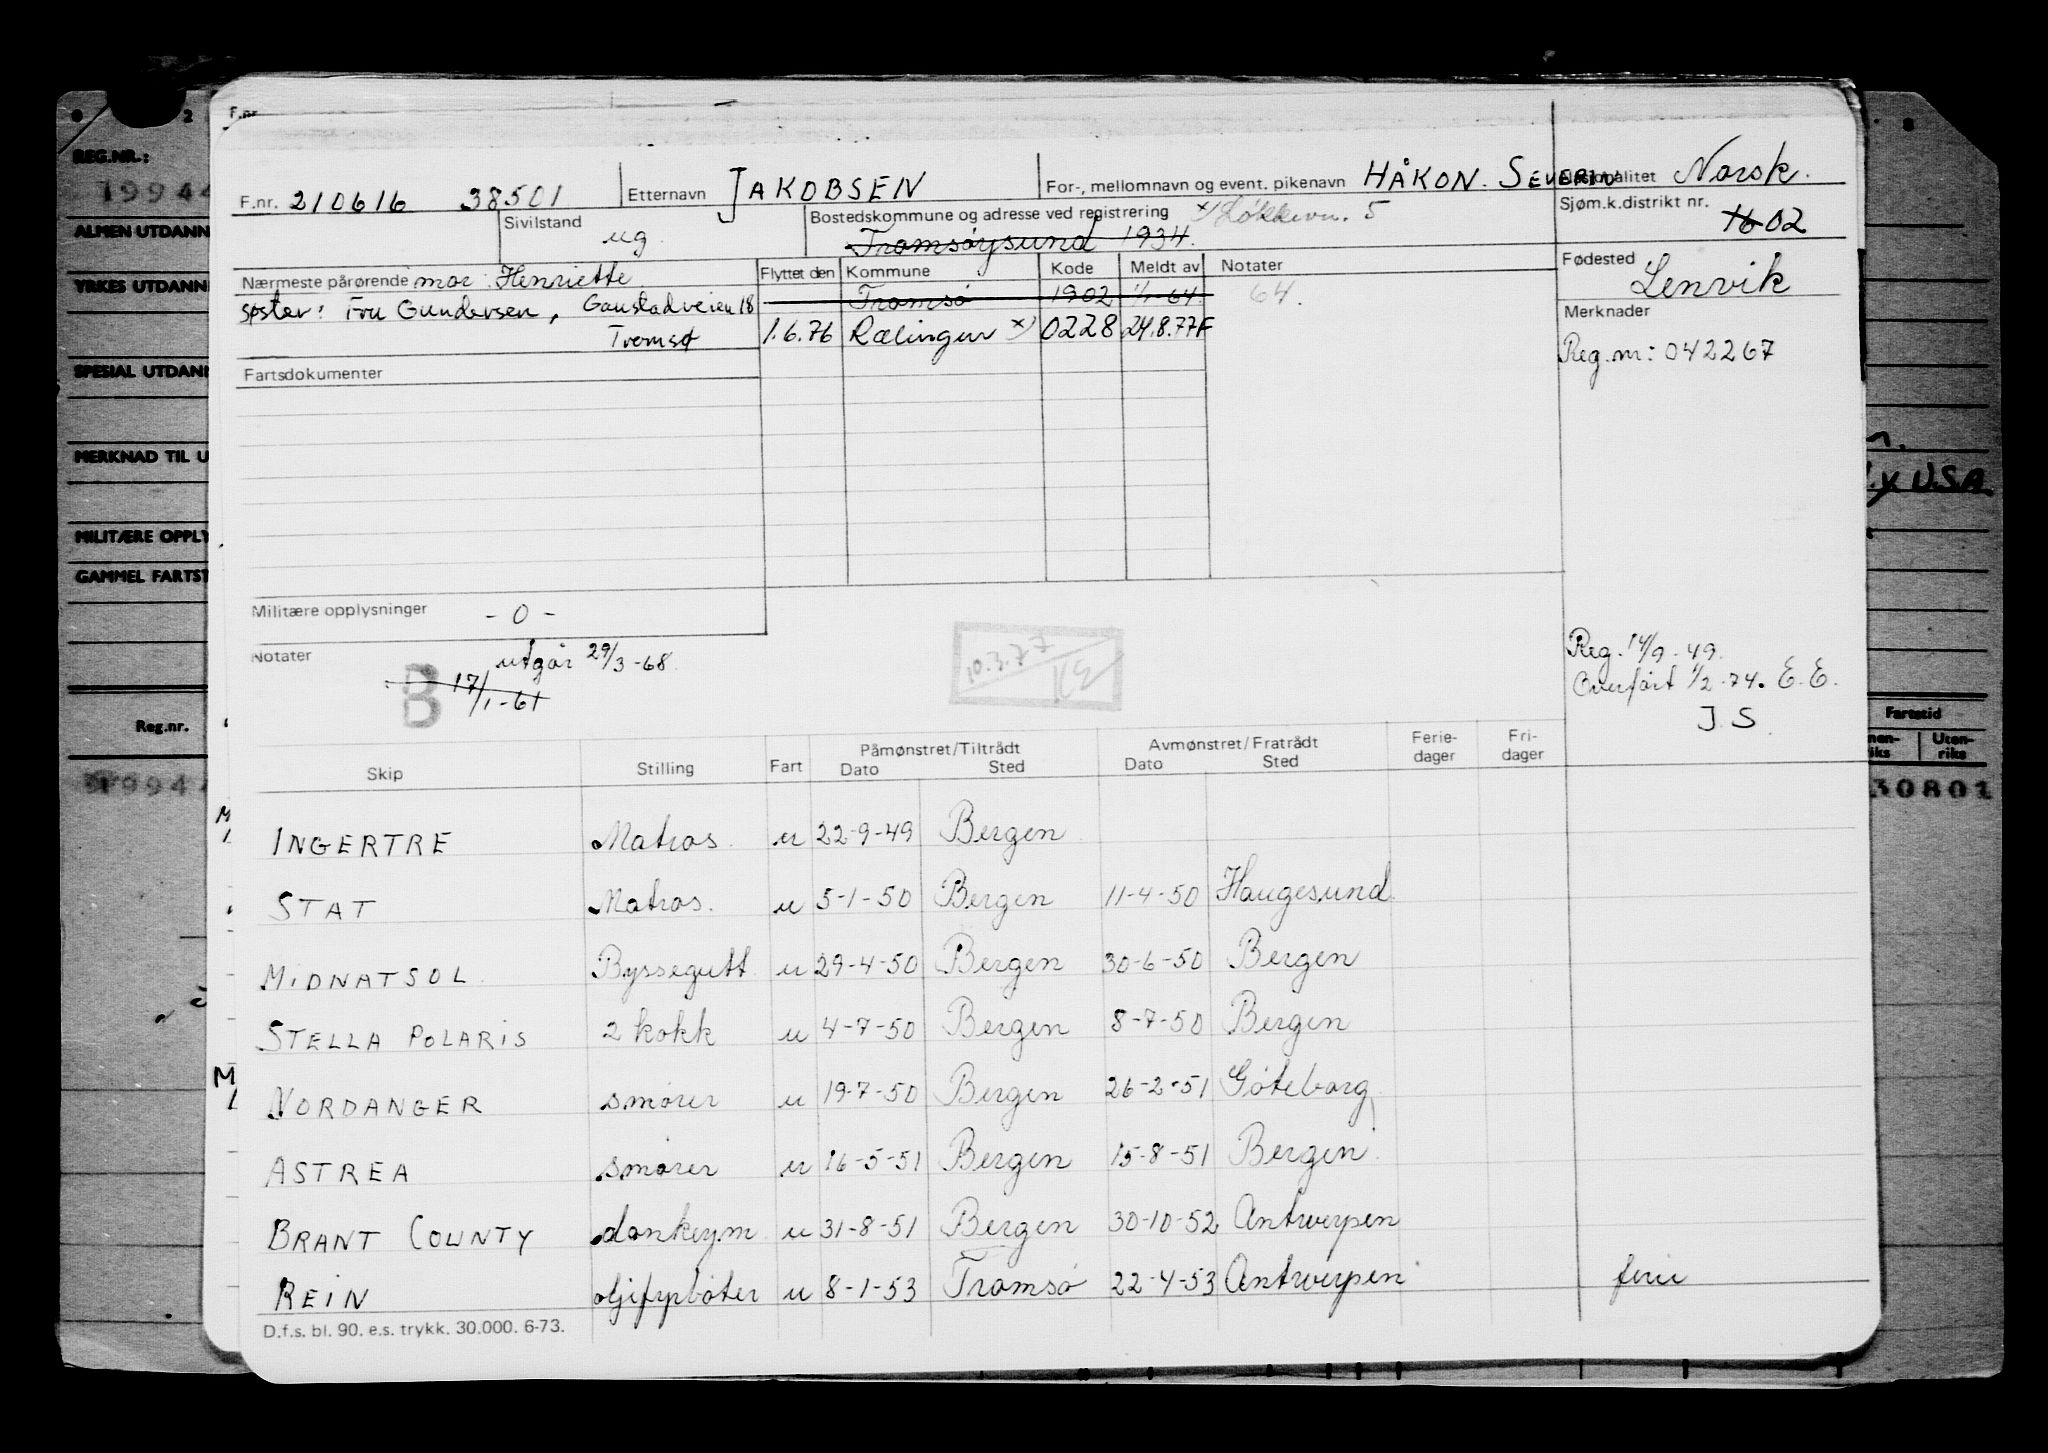 F.nr
F.nr. 210616 38501 Etternavn JAKOBSEN For-, mellomnavn og event. pikenavn HÅKON. SEVERIN Nasjonalitet Norsk.
Sivilstand ug. Bostedskommune og adresse ved registrering x) Løkkevn. 5 Sjøm.k.distrikt nr. 16 02
Tromsøysund 1934.
Nærmeste pårørende mor: Henriette Flyttet den Kommune Kode Meldt av Notater Fødested Lenvik
søster: Fru Gundersen, Gaustadveien 18 Tromsø 1902 1/1-64. 64.
Tromsø 1.6.76 Rælingen x) 0228 24.8.77F Merknader
Reg.nr: 042267
Fartsdokumenter
Militære opplysninger - 0 -
Notater utgår 29/3-68
B 17/1-61
10.3.77
Reg. 14/9-49.
Overført 1/2-74. E.E.
J.S.
Skip Stilling Fart Påmønstret/Tiltrådt Dato Sted Avmønstret/Fratrådt Dato Sted Ferie-dager Fri-dager
INGERTRE Matros. u 22-9-49 Bergen
STAT Matros. u 5-1-50 Bergen 11-4-50 Haugesund
MIDNATSOL Byssegutt u 29-4-50 Bergen 30-6-50 Bergen
STELLA POLARIS 2 kokk u 4-7-50 Bergen 8-7-50 Bergen
NORDANGER smører u 19-7-50 Bergen 26-2-51 Göteborg
ASTREA smører u 16-5-51 Bergen 15-8-51 Bergen
BRANT COUNTY donkeym u 31-8-51 Bergen 30-10-52 Antwerpen
REIN oljefyrbøter u 8-1-53 Tromsø 22-4-53 Antwerpen ferie
D.f.s. bl. 90. e.s. trykk. 30.000. 6-73.
2
REG.NR.:
19944
ALMEN UTDANN
YRKES UTDANN
SPESIAL UTDANN
MERKNAD TIL U
MILITÆRE OPPLY
GAMMEL FARTST
Reg.nr.
19944
8
U.S.A
Fartstid
Uten-riks
30801